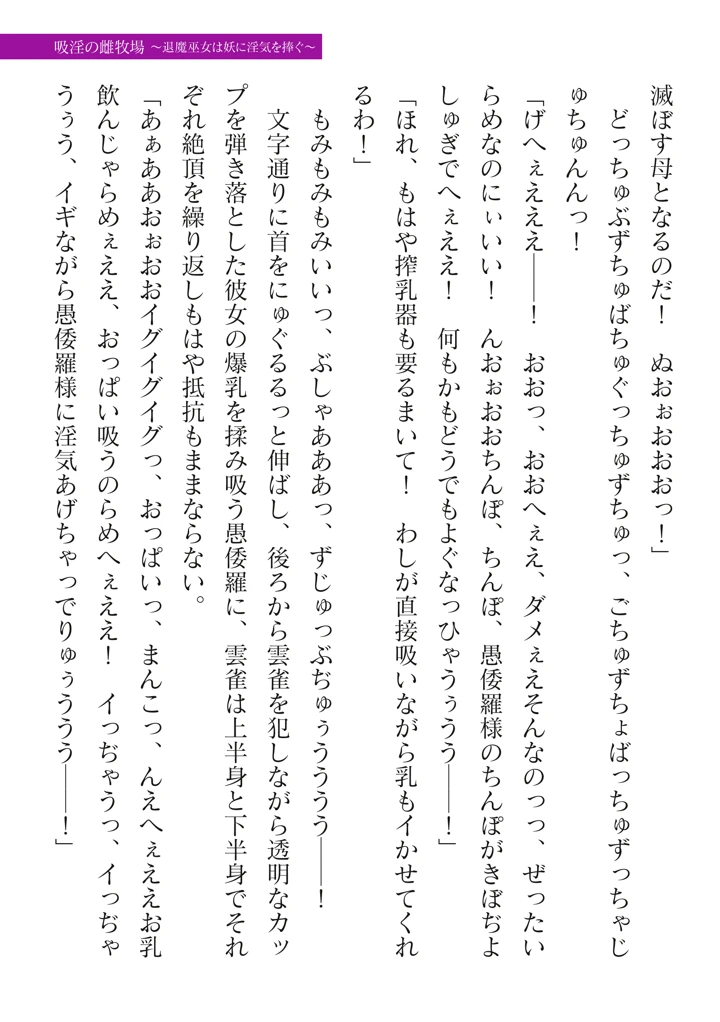 吸淫の雌牧場 ～退魔巫女は妖に淫気を捧ぐ～
滅ぼす母となるのだ！　ぬおぉおおおっ！」
　どっちゅぶずちゅばちゅぐっちゅずちゅっ、ごちゅずちょばっちゅずっちゃじ
ゅちゅんんっ！
「げへぇえええ――！　おおっ、おおへぇえ、ダメぇえそんなのっっ、ぜったい
らめなのにぃいい！　んおぉおおちんぽ、ちんぽ、愚倭羅様のちんぽがきぼぢよ
しゅぎでへぇええ！　何もかもどうでもよぐなっひゃうぅうう――！」
「ほれ、もはや搾乳器も要るまいて！　わしが直接吸いながら乳もイかせてくれ
るわ！」
　もみもみもみいいっ、ぶしゃあああっ、ずじゅっぶぢゅぅうううう――！
　文字通りに首をにゅぐるるっと伸ばし、後ろから雲雀を犯しながら透明なカッ
プを弾き落とした彼女の爆乳を揉み吸う愚倭羅に、雲雀は上半身と下半身でそれ
ぞれ絶頂を繰り返しもはや抵抗もままならない。
「あぁああおぉおおイグイグイグっ、おっぱいっ、まんこっ、んえへぇええお乳
飲んじゃらめぇええ、おっぱい吸うのらめへぇええ！　イっぢゃうっ、イっぢゃ
うぅう、イギながら愚倭羅様に淫気あげちゃっでりゅぅううう――！」